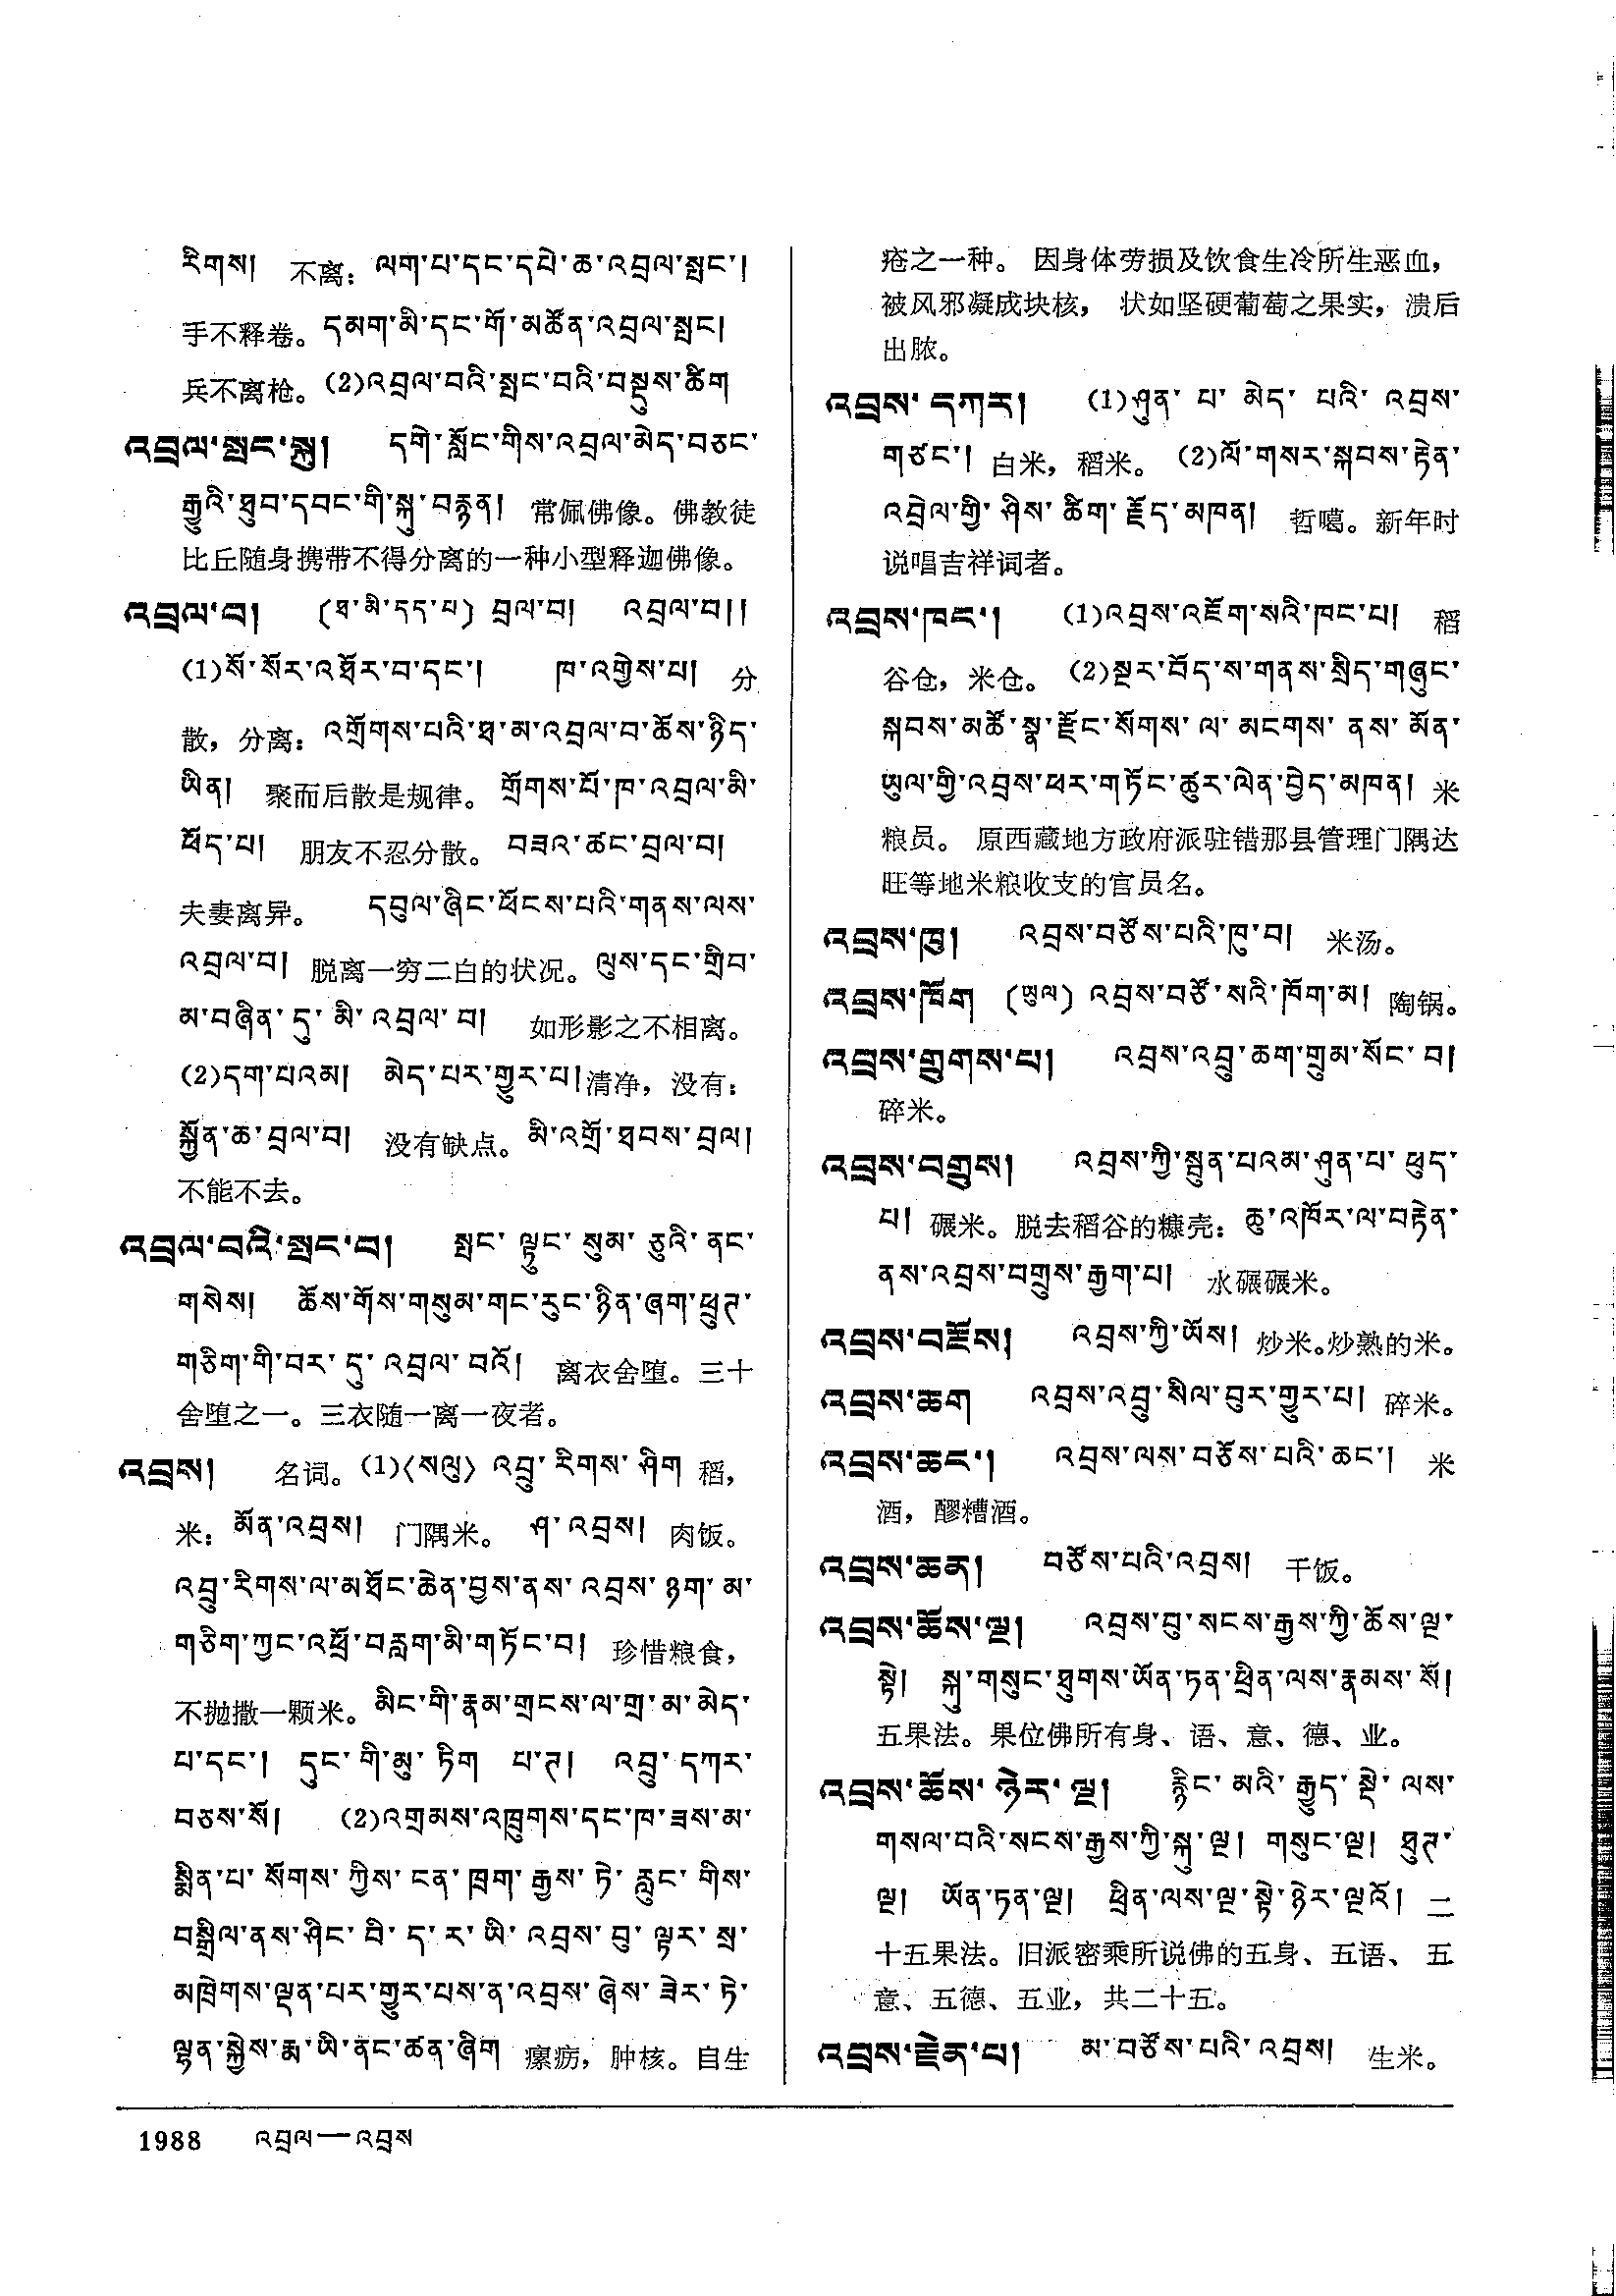 རིགས། 不离: ལག་པ་དང་དཔེ་ཆ་འབྲལ་སྤང་།
手不释卷。དམག་མི་དང་གོ་མཚོན་འབྲལ་སྤང།
兵不离枪。(2)འབྲལ་བའི་སྤང་བའི་བསྡུས་ཚིག
འབྲལ་སྤང་སྐུ། དགེ་སློང་གིས་འབྲལ་མེད་བཅང་
རྒྱུའི་ཐུབ་དབང་གི་སྐུ་བརྙན། 常佩佛像。佛教徒
比丘随身携带不得分离的一种小型释迦佛像。
འབྲལ་བ། (ཐ་མི་དད་པ) བྲལ་བ། འབྲལ་བ།།
(1)སོ་སོར་འཐོར་བ་དང་། ཁ་འགྱེས་པ། 分
散，分离: འགྲོགས་པའི་ཐ་མ་འབྲལ་བ་ཆོས་ཉིད་
ཡིན། 聚而后散是规律。 གྲོགས་པོ་ཁ་འབྲལ་མི་
ཕོད་པ། 朋友不忍分散。 བཟའ་ཚང་བྲལ་བ།
夫妻离异。 དབུལ་ཞིང་ཕོངས་པའི་གནས་ལས་
འབྲལ་བ། 脱离一穷二白的状况。ལུས་དང་གྲིབ་
མ་བཞིན་དུ་མི་འབྲལ་བ། 如形影之不相离。
(2)དག་པའམ། མེད་པར་གྱུར་པ།清净，没有:
སྐྱོན་ཆ་བྲལ་བ། 没有缺点。མི་འགྲོ་ཐབས་བྲལ།
不能不去。
འབྲལ་བའི་སྤང་བ། སྤང་ལྟུང་སུམ་ཅུའི་ནང་
གསེས། ཆོས་གོས་གསུམ་གང་རུང་ཉིན་ཞག་ཕྲུཊ་
གཅིག་གི་བར་དུ་འབྲལ་བའོ། 离衣舍堕。三十
舍堕之一。三衣随一离一夜者。
འབྲས། 名词。(1)〈སལུ〉འབྲུ་རིགས་ཤིག 稻，
米: མོན་འབྲས། 门隅米。 ཤ་འབྲས། 肉饭。
འབྲུ་རིགས་ལ་མཐོང་ཆེན་བྱས་ནས་འབྲས་ཉག་མ་
གཅིག་ཀྱང་འཕྲོ་བརླག་མི་གཏོང་བ། 珍惜粮食，
不抛撒一颗米。མིང་གི་རྣམ་གྲངས་ལ་གྲ་མ་མེད་
པ་དང་། དུང་གི་མུ་ཏིག པ་ཊ། འབྲུ་དཀར་
བཅས་སོ། (2)འགྲམས་འཁྲུགས་དང་ཁ་ཟས་མ་
སྨིན་པ་སོགས་ཀྱིས་ངན་ཁྲག་རྒྱས་ཏེ་རླུང་གིས་
བསྒྲིལ་ནས་ཤིང་བི་ད་ར་ཡི་འབྲས་བུ་ལྟར་སྲ་
མཁྲེགས་ལྡན་པར་གྱུར་པས་ན་འབྲས་ཞེས་ཟེར་ཏེ་
ལྷན་སྐྱེས་རྨ་ཡི་ནང་ཚན་ཞིག 瘰疬，肿核。自生
疮之一种。 因身体劳损及饮食生冷所生恶血，
被风邪凝成块核， 状如坚硬葡萄之果实，溃后
出脓。
འབྲས་དཀར། (1)ཤུན་པ་མེད་པའི་འབྲས་
གཙང་། 白米，稻米。 (2)ལོ་གསར་སྐབས་རྟེན་
འབྲེལ་གྱི་ཤིས་ཚིག་རྗོད་མཁན། 哲噶。新年时
说唱吉祥词者。
འབྲས་ཁང་། (1)འབྲས་འཇོག་སའི་ཁང་པ། 稻
谷仓，米仓。 (2)སྔར་བོད་ས་གནས་སྲིད་གཞུང་
སྐབས་མཚོ་སྣ་རྫོང་སོགས་ལ་མངགས་ནས་མོན་
ཡུལ་གྱི་འབྲས་ཕར་གཏོང་ཚུར་ལེན་བྱེད་མཁན། 米
粮员。 原西藏地方政府派驻错那县管理门隅达
旺等地米粮收支的官员名。
འབྲས་ཁུ། འབྲས་བཙོས་པའི་ཁུ་བ། 米汤。
འབྲས་ཁོག (ཡུལ) འབྲས་བཙོ་སའི་ཁོག་མ། 陶锅。
འབྲས་གྲུགས་པ། འབྲས་འབྲུ་ཆག་གྲུམ་སོང་བ།
碎米。
འབྲས་བགྲུས། འབྲས་ཀྱི་སྦུན་པའམ་ཤུན་པ་ཕུད་
པ། 碾米。脱去稻谷的糠壳: ཆུ་འཁོར་ལ་བརྟེན་
ནས་འབྲས་བགྲུས་རྒྱག་པ། 水碾碾米。
འབྲས་བརྔོས། འབྲས་ཀྱི་ཡོས། 炒米。炒熟的米。
འབྲས་ཆག འབྲས་འབྲུ་སིལ་བུར་གྱུར་པ། 碎米。
འབྲས་ཆང་། འབྲས་ལས་བཙོས་པའི་ཆང་། 米
酒，醪糟酒。
འབྲས་ཆན། བཙོས་པའི་འབྲས། 干饭。
འབྲས་ཆོས་ལྔ། འབྲས་བུ་སངས་རྒྱས་ཀྱི་ཆོས་ལྔ་
སྟེ། སྐུ་གསུང་ཐུགས་ཡོན་ཏན་ཕྲིན་ལས་རྣམས་སོ།
五果法。果位佛所有身、语、意、德、业。
འབྲས་ཆོས་ཉེར་ལྔ། རྙིང་མའི་རྒྱུད་སྡེ་ལས་
གསལ་བའི་སངས་རྒྱས་ཀྱི་སྐུ་ལྔ། གསུང་ལྔ། ཐུཊ་
ལྔ། ཡོན་ཏན་ལྔ། ཕྲིན་ལས་ལྔ་སྟེ་ཉེར་ལྔའོ། 二
十五果法。旧派密乘所说佛的五身、五语、 五
意、五德、五业，共二十五。
འབྲས་རྗེན་པ། མ་བཙོས་པའི་འབྲས། 生米。
1988 འབྲལ—འབྲས